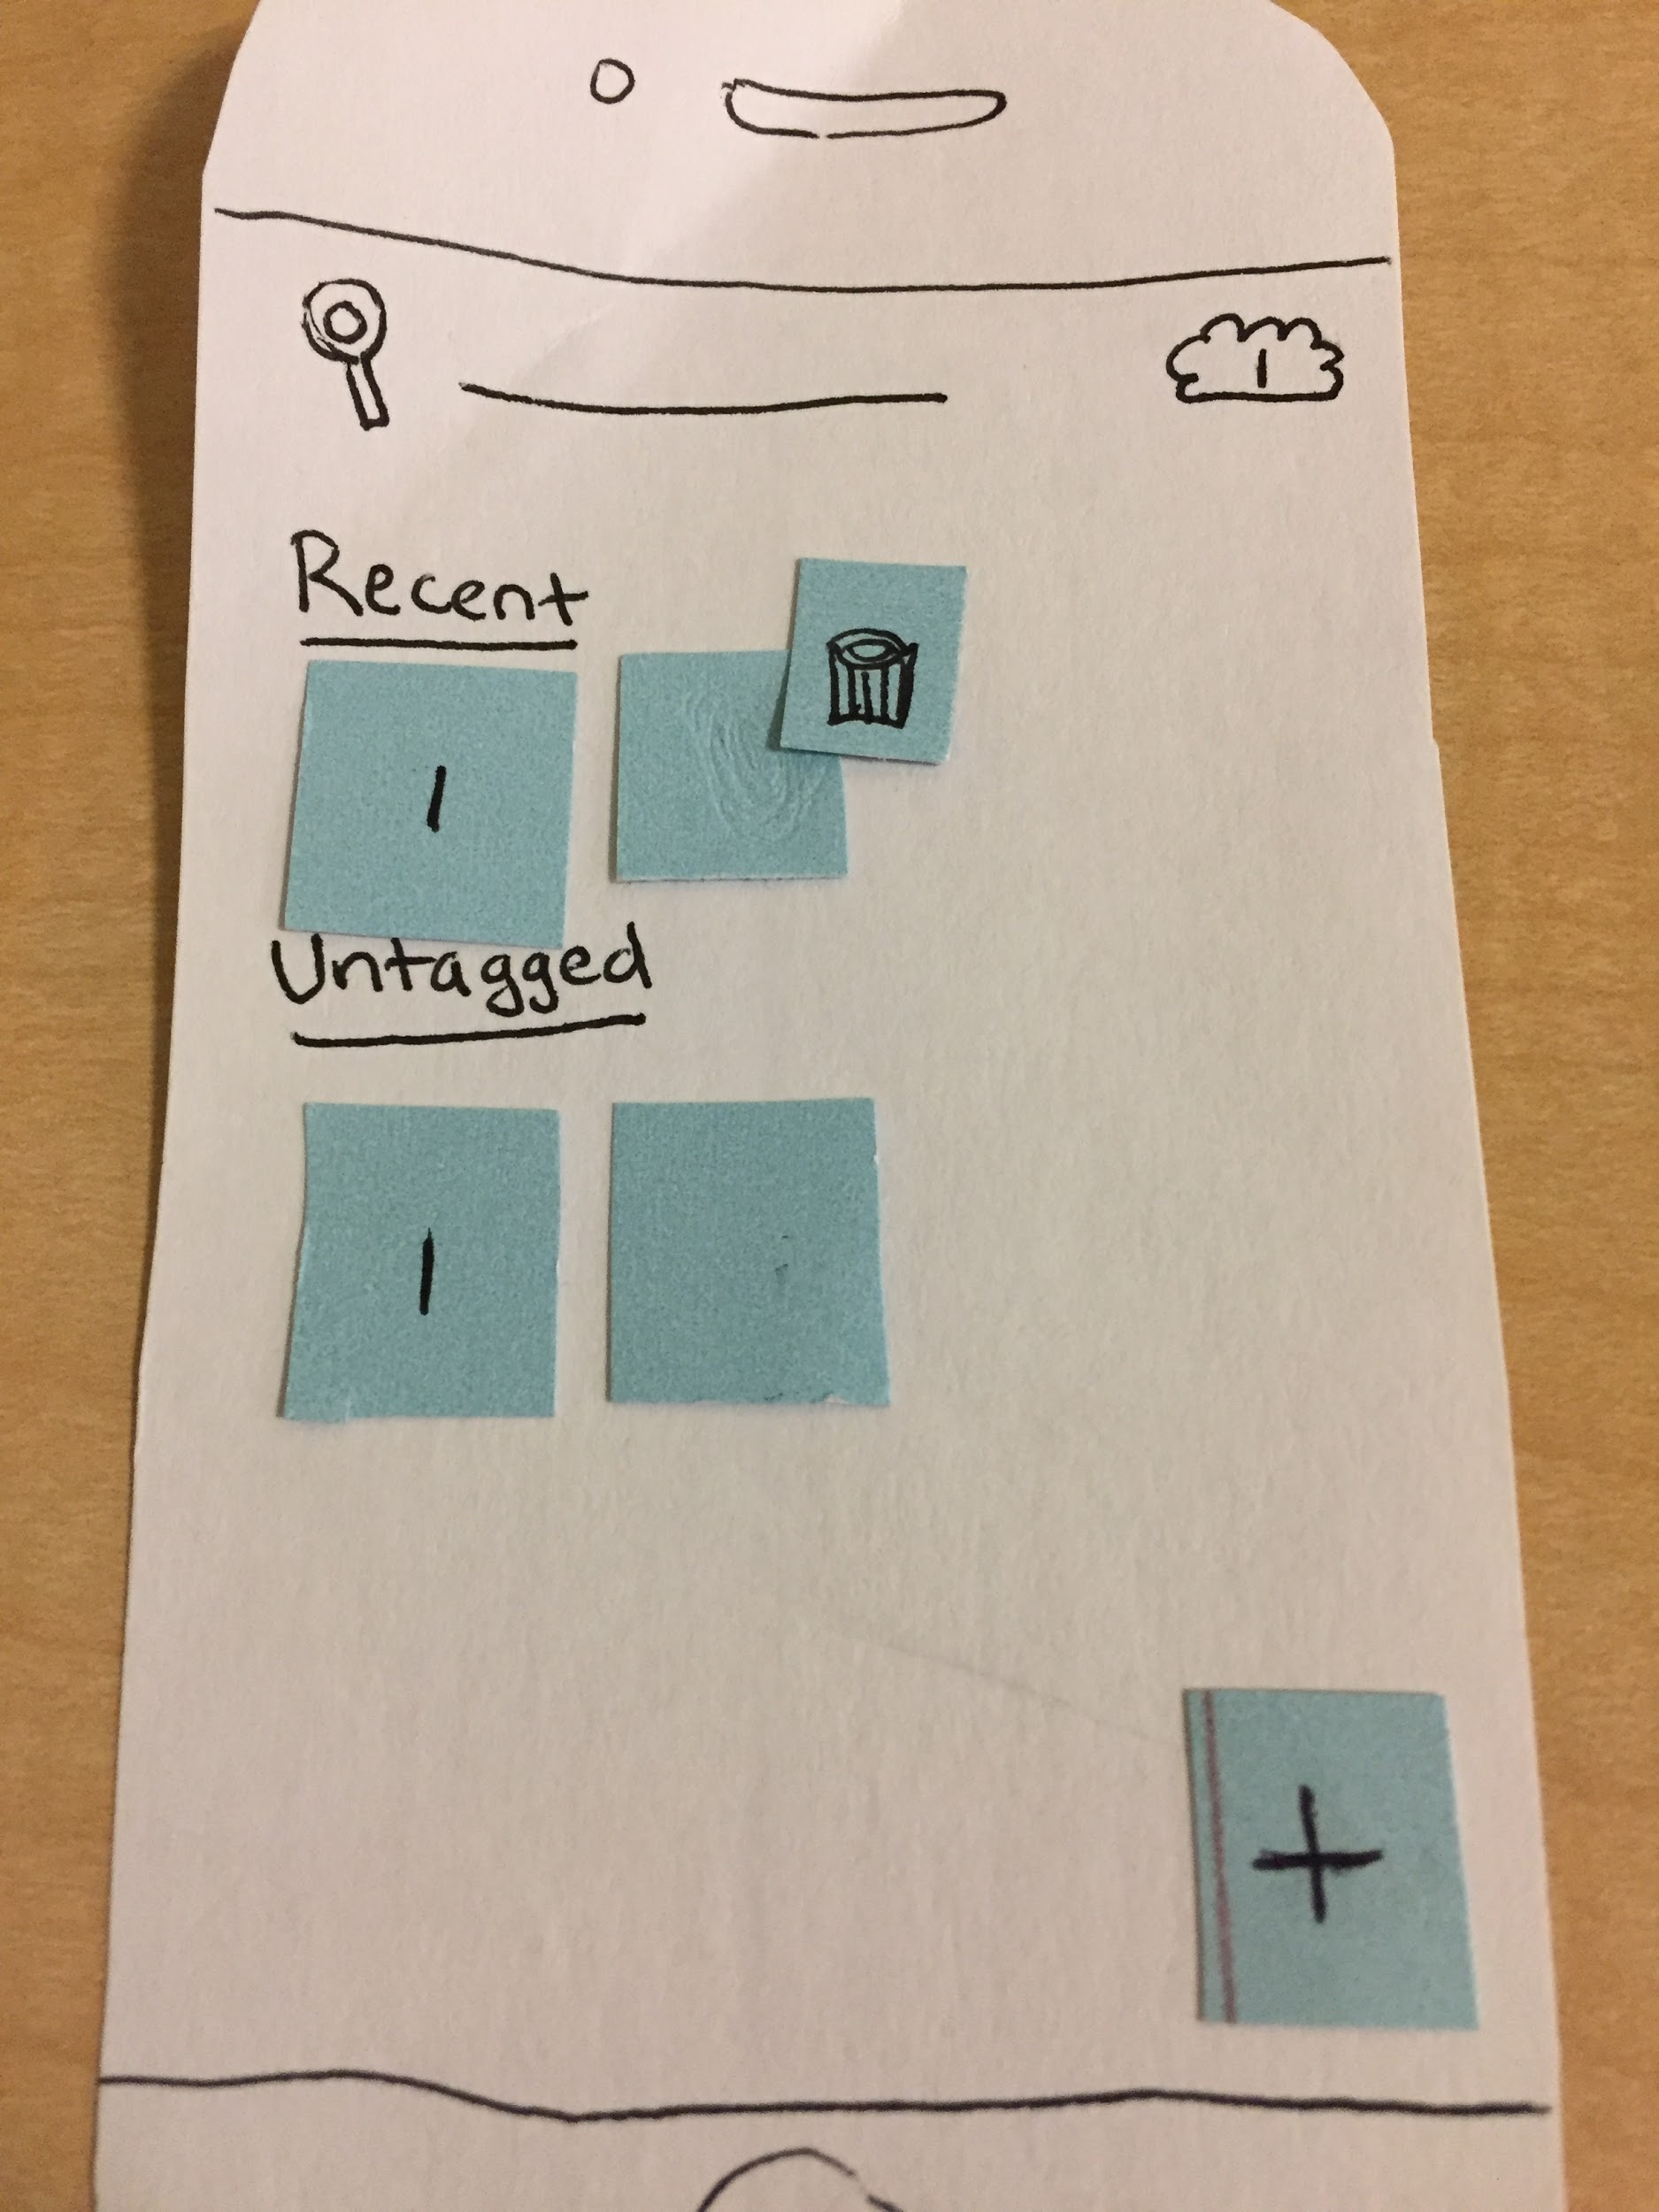 1
Recent
1
Untagged
1
+